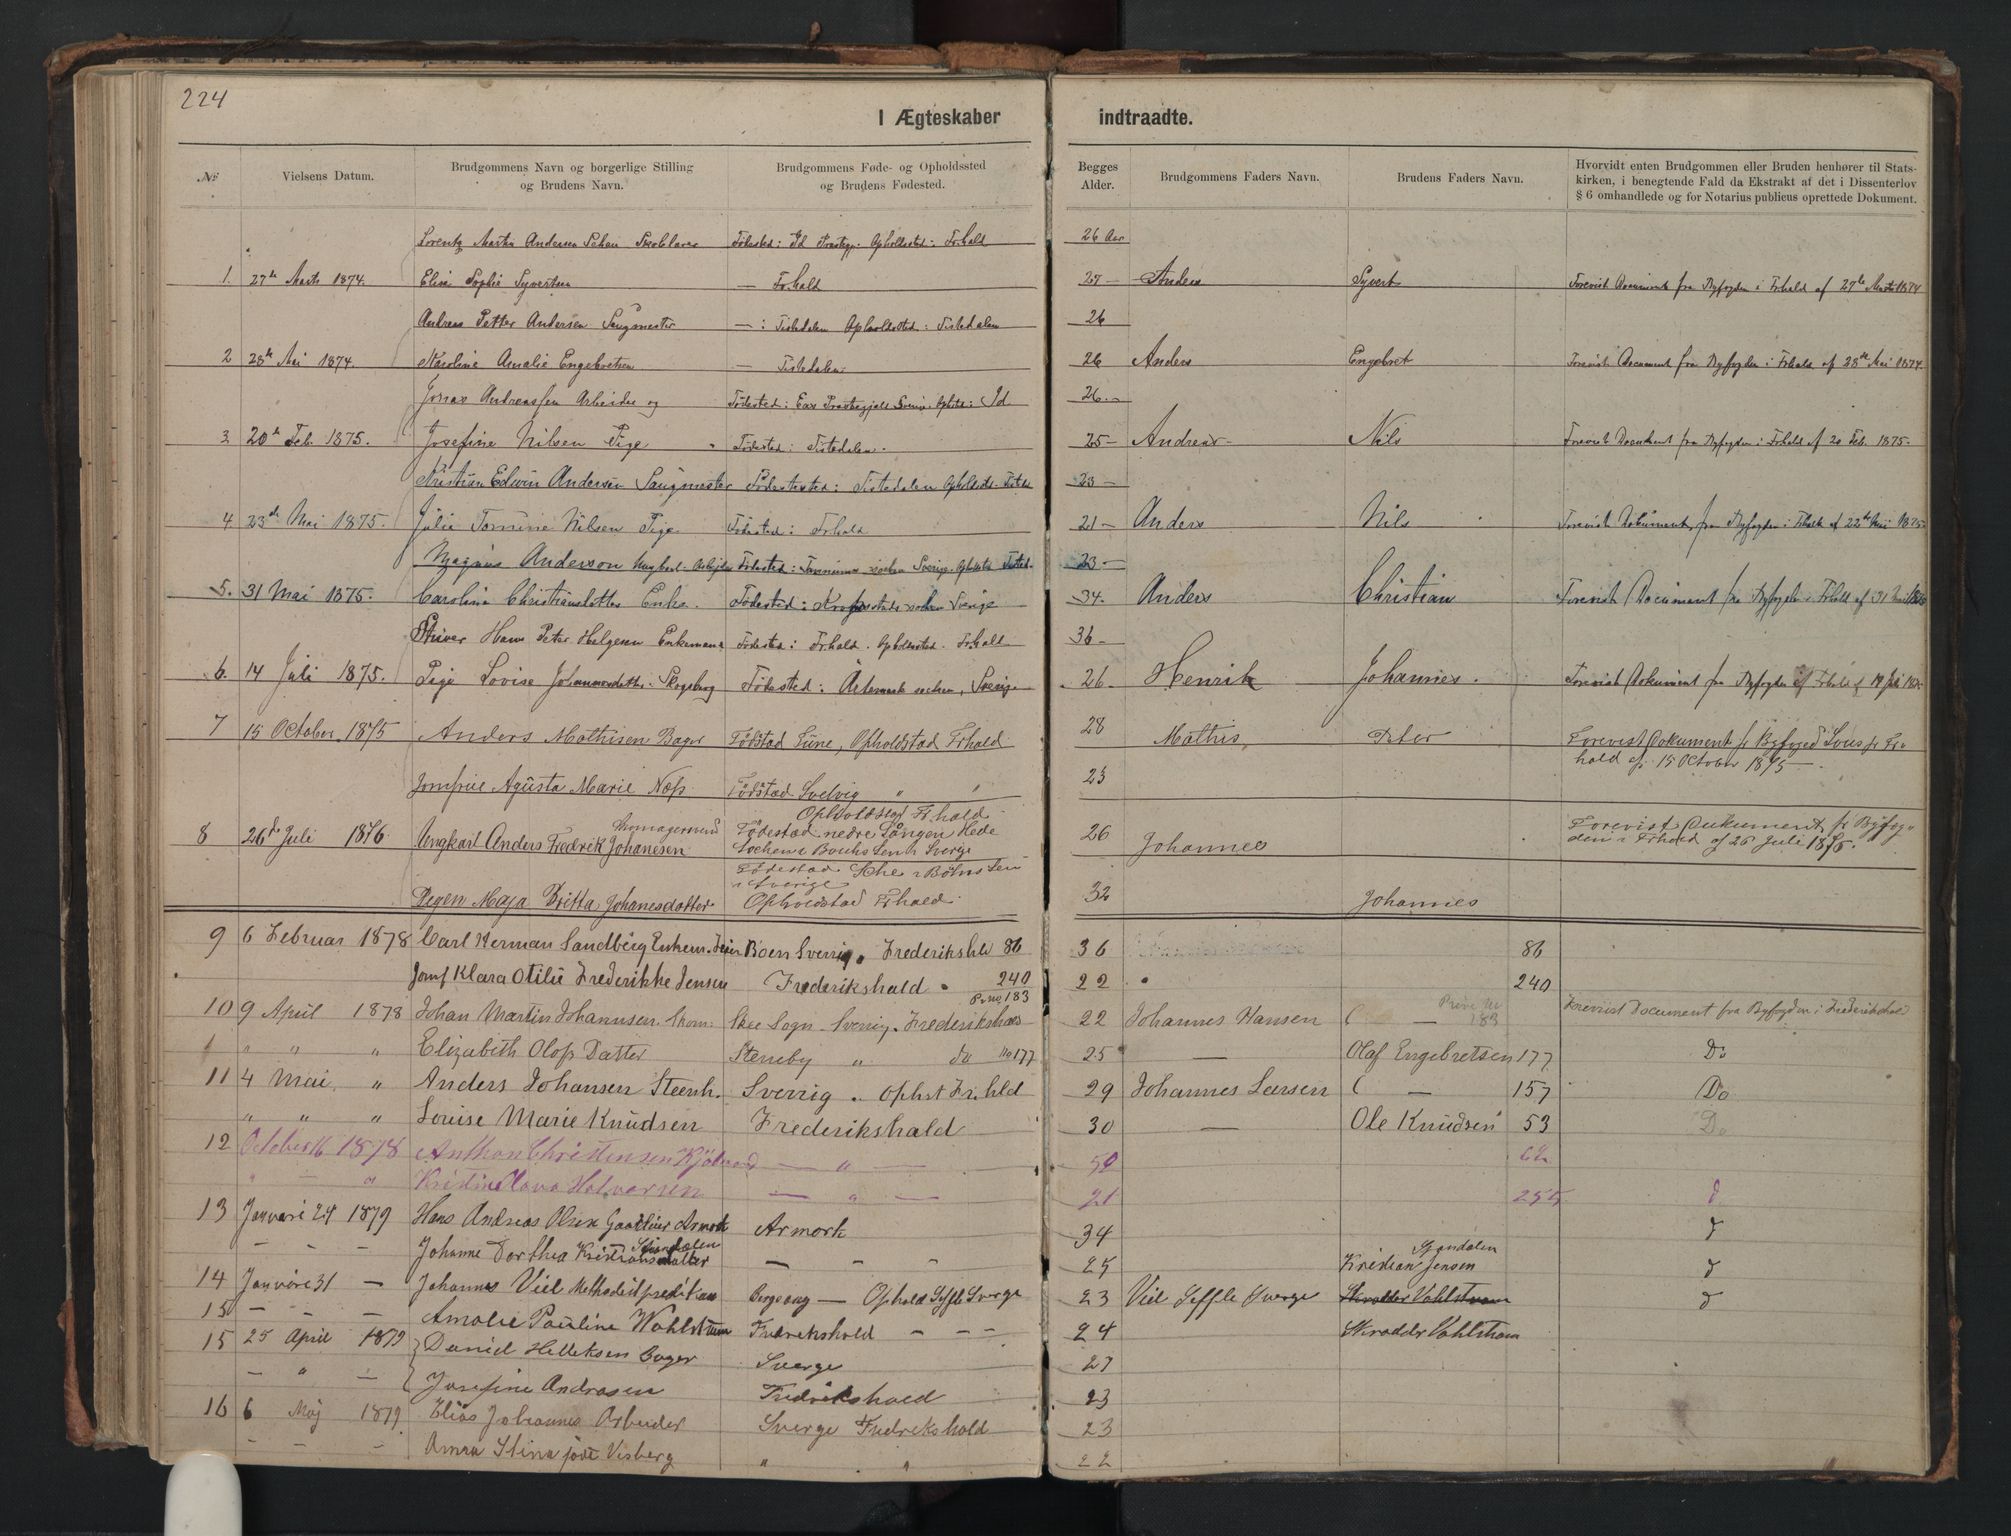 224
I Ægteskaber indtraadte.
№ Vielsens Datum. Brudgommens Navn og borgerlige Stilling og Brudens Navn. Brudgommens Føde- og Opholdssted og Brudens Fødested. Begges Alder. Brudgommens Faders Navn. Brudens Faders Navn. Hvorvidt enten Brudgommen eller Bruden henhører til Statskirken, i benegtende Fald da Ekstrakt af det i Dissenterlov § 6 omhandlede og for Notarius publicus oprettede Dokument.
Lorentz Martin Andersen Fødested: Id Præstegj. Opholdssted: Frhald 26 Aar
1. 27de Marts 1874. Elise Sophie Syvertsen — Frhald 27 — Anders Syvert Forevist Document fra Byfogden i Frhald af 27de Marts 1874
Andreas Petter Andersen Saugmester — : Tistedalen Opholdssted: Tistedalen 26
2 28de Mai 1874. Karoline Amalie Engebretsen — Tistedalen 26 Anders Engebret Forevist Document fra Byfogden i Frhald af 28de Mai 1874
Jonas Andreassen Arbeider og Fødested: Præstegjeld Sverig. Opholdst: Id 26. -
3 20de Feb. 1875. Josefine Nilsen Pige Fødested: Tistedalen. 25 — Andreas Nils Forevist Document fra Byfogden i Frhald af 20 Feb. 1875.
Kristian Edvin Andersen Saugmester Fødested: Tistedalen Opholdst. Tistdl 23 —
4 23de Mai 1875. Julie Tomine Nilsen Pige Fødested: Frhald 21 — Anders Nils Forevist Dokument fra Byfogden i Frhald af 22de Mai 1875
Magnus Anderson Ungkarl. Arbejder Fødested: socken Sverige. Opholdsted Tisted. 23 —
5. 31 Mai 1875. Carolina Christiansdotter Enke. Fødested: Kropstads socken Sverige 34. Anders Christian Forevist Document fra Byfogden i Frhald af 31 Mai 1875
Skriver Hans Peter Helgesen Enkemand Fødested: Frhald. Opholdssted. Frhald 36 -
6. 14 Juli 1875. Pige Lovise Johannesdatter Skogsberg Fødested: Årtemark socken, Sverige 26 - Henrik Johannes. Forevist Dokument fra Byfogden i Frhald af 14 Juli 1875
7 15 October 1875 Anders Mathisen Bager Fødstad Eune, Opholdstad Frhald 28 Mathis Peter Forevist Dokument fr Byfoged Sous fr Frhald af 15 October 1875
Jomfrue Agusta Marie Næss Fødstad Svelvig " " 23
8 26de Juli 1876. Ungkarl Anders Fredrik Johanesen Skomagersvend Opholdstad Frhald
Fødestad nedre Sången Hede Sochen i Bouhs Len i Sverge 26 Johannes Forevist Dokument fr Byfogden i Frhald af 26 Juli 1876.
Fødestad i Böhus Len i Sverige
Pigen Maja Britta Johanesdatter Opholdstad Frhald. 32 Johannes
9 6 Februar 1878 Carl Herman Sandberg Enkem. Boen Sverrig Frederikshld 86 36 86
Jomf Klara Otilie Frederikke Jensen Frederikshald 240 22 240
10 9 April 1878 Johan Martin Johannsen. Skom: Skee Sogn - Sverrig. Frederikshald Pr no 183 22 Johannes Hansen ( — Prve No 183 Forevist Document fra Byfogden i Frederikshald
" " " Elizabeth Olofs Datter Steneby " do No 177 25 — Olaf Engebretsen 177 Do
11 4 Mai " Anders Johansen Steenh. Sverrig . Ophst Fr.hld 29 Johannes Larsen ( — 157 Do
" " " Louise Marie Knudsen Frederikshald 30 — Ole Knudsen 53 Do
12 October 16 1878 Anthon Christensen — " — 50 62
" — " Kristine Olava Halvorsen — " — 21 255 d
13 Januari 24 1879 Hans Andreas Olsen Gaardbrier Armork Armork 34 d
— — — Johanne Dorthea Kristiansdatter Skindalen — " " 25 Kristian Jensen d
14 Januari 31 — Johannes Viel Methodistpredikan Bergvang — Ophold Seffle Sverge 23 Viel Seffle Sverge Skrædder Vahlstrøm d
15 — — Amalie Pauline Wahlstrøm Fredrikshald — — — 24 Skrædder Vahlstrøm
15 25 April 1879 Daniel Helleksen Bager Sverge 27
— " — Josefine Andrasen Fredrikshald 23
16 6 Maj 1879. Elias Johannes Arbeider Sverge Fredrikshald 23
— — — Anna Stina Visberg " " 22